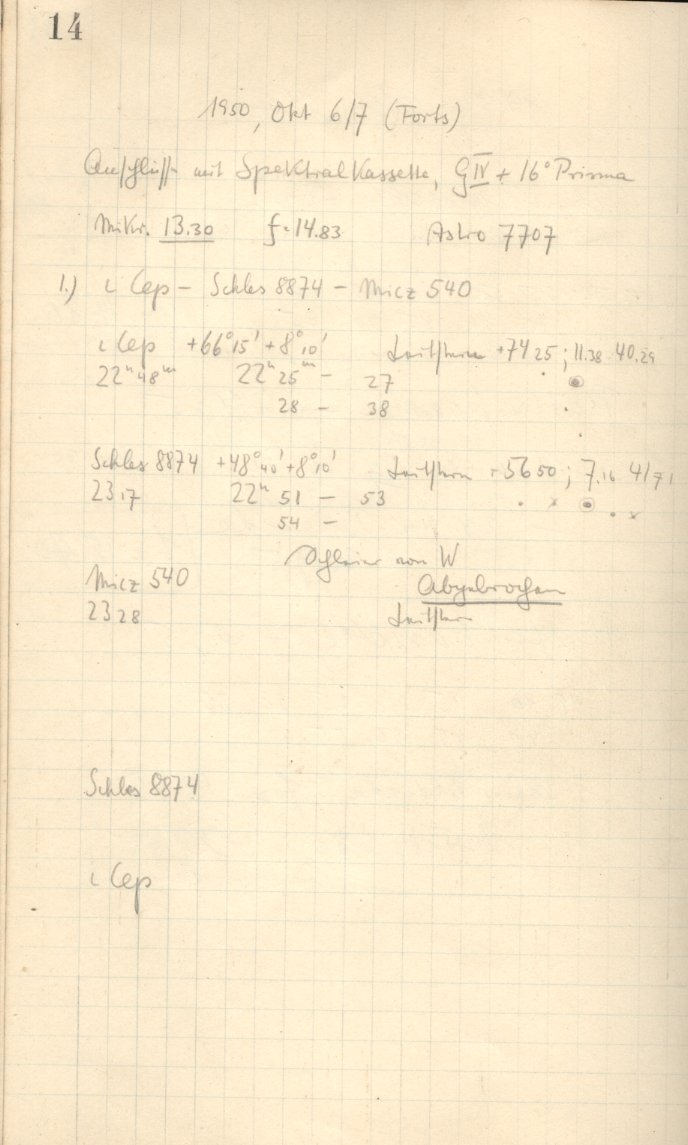 14
1950, Okt 6/7 (Forts)
Anschlüsse mit Spektralkassette, G IV + 16° Prisma
Mikr. 13.30 f = 14.83 Astro 7707
1.) ι Cep – Schles 8874 – Micz 540
ι Cep +66° 15' + 8° 10' Leitstern +74 25 ; 11.38 40.29
22h 48m 22h 25m – 27
28 – 38
Schles 8874 +48° 40' + 8° 10' Leitstern +56 50 ; 7.16 41.71
23 17 22h 51 – 53
54 –
Schleier von W
Micz 540 Abgebrochen
23 28 Leitstern
Schles 8874
ι Cep